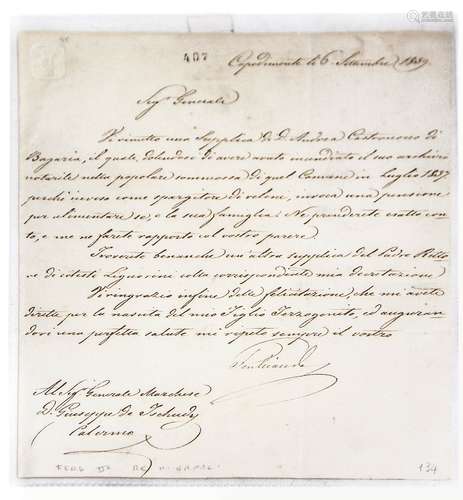 407
Capodimonte li 6 Settembre 1839.
Sigr Generale
Vi rimetto una supplica di D. Andrea Castronovo di
Bagaria, il quale dolendosi di avere avuto incendiato il suo archivio
notarile nella popolare sommossa di quel Comune in Luglio 1837
perchè inviso come spargitore di veleni, invoca una pensione
per alimentare se, e la sua famiglia. Ne prenderete esatto con-
to, e me ne farete rapporto col vostro parere.
Troverete benanche un'altra supplica del Padre Retto
re di cotesti Liguorini colla corrispondente mia decretazione
Vi ringrazio infine della felicitazione, che mi avete
diretta per la nascita del mio Figlio Terzogenito, ed auguran
dovi una perfetta salute mi ripeto sempre il vostro
Ferdinando
Al Sigr Generale Marchese
D. Giuseppe de Tschudy
Palermo
134